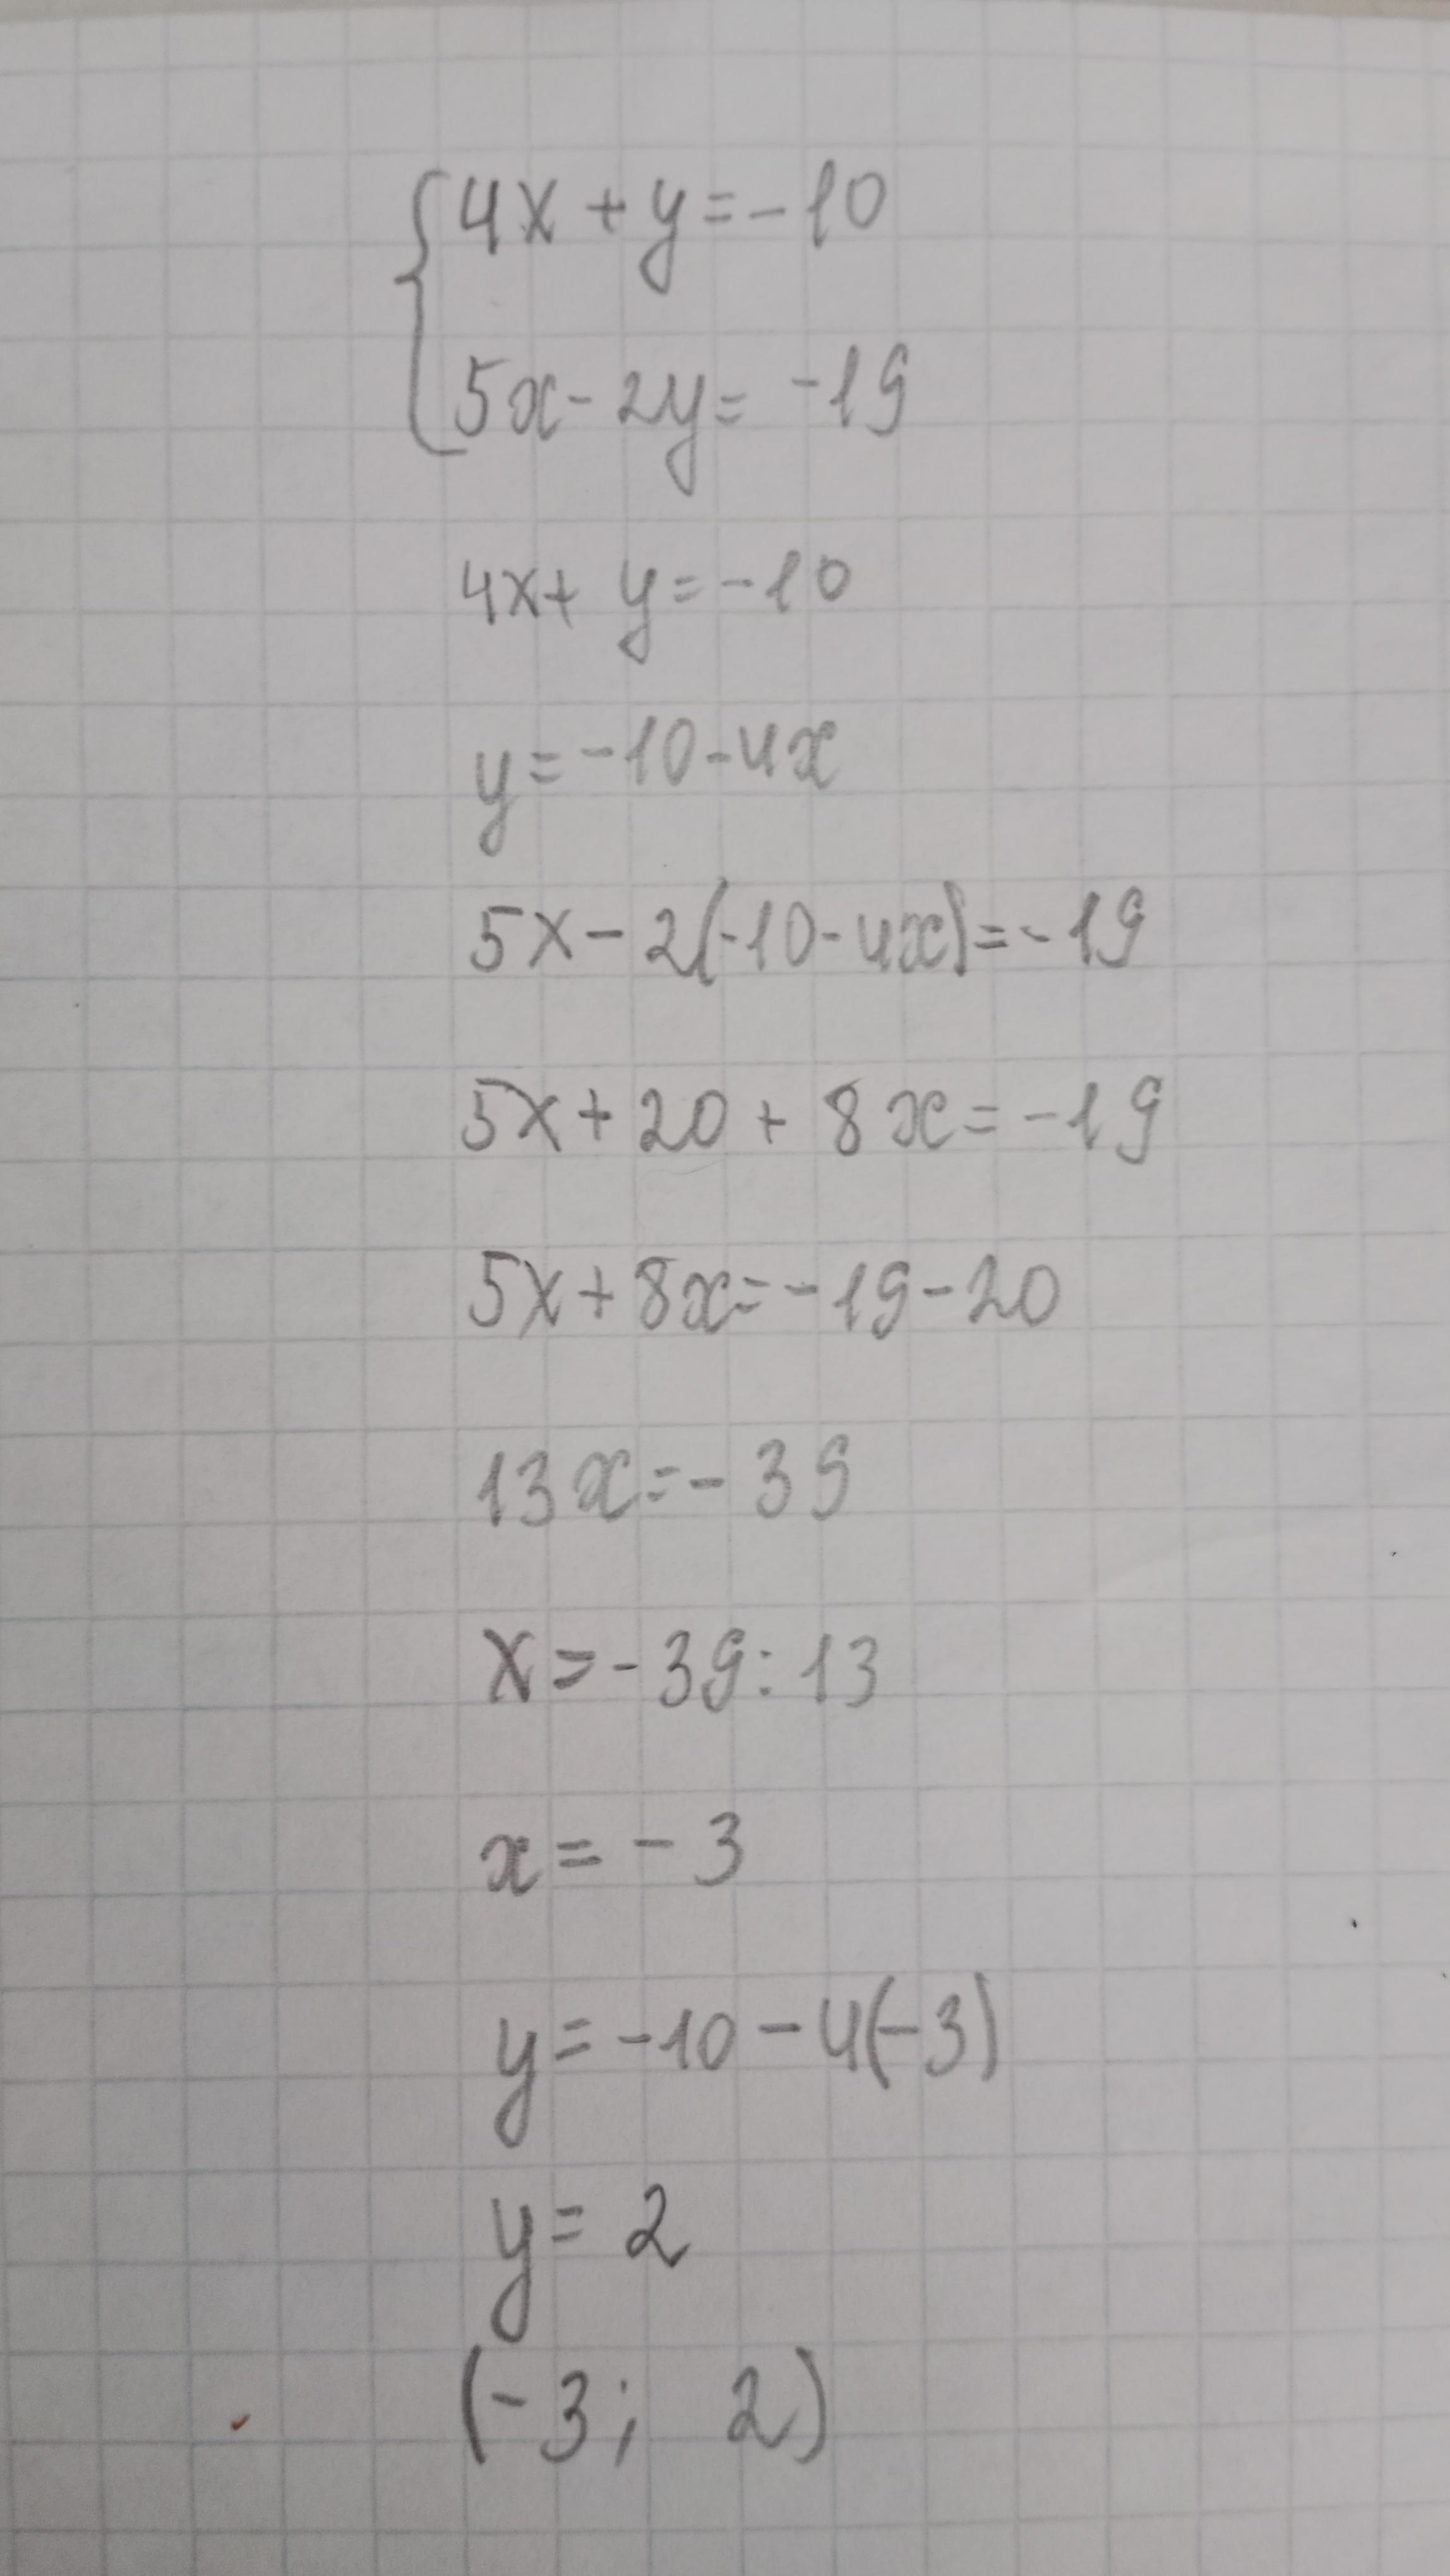 {4x + y = -10
5x - 2y = -19
4x + y = -10
y = -10 - 4x
5x - 2(-10 - 4x) = -19
5x + 20 + 8x = -19
5x + 8x = -19 - 20
13x = -39
x = -39 : 13
x = -3
y = -10 - 4(-3)
y = 2
(-3; 2)